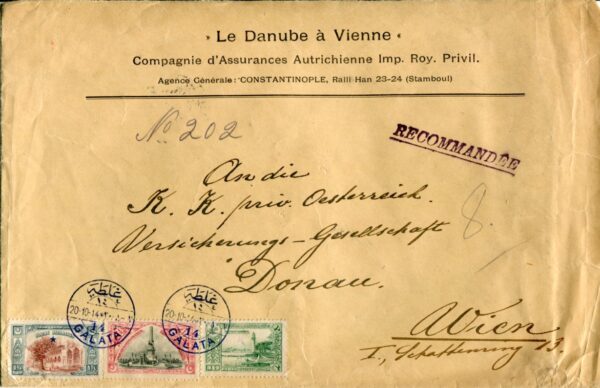 • Le Danube à Vienne •
Compagnie d'Assurances Autrichienne Imp. Roy. Privil.
Agence Générale: CONSTANTINOPLE, Ralli Han 23-24 (Stamboul)
No 202
RECOMMANDÉE
An die
K. K. priv. Oesterreich.
8.
Versicherungs-Gesellschaft
"Donau.
Wien
I., Schottenring 13.
غلطه
20-10-14
14
GALATA
غلطه
20-10-14
14
GALATA